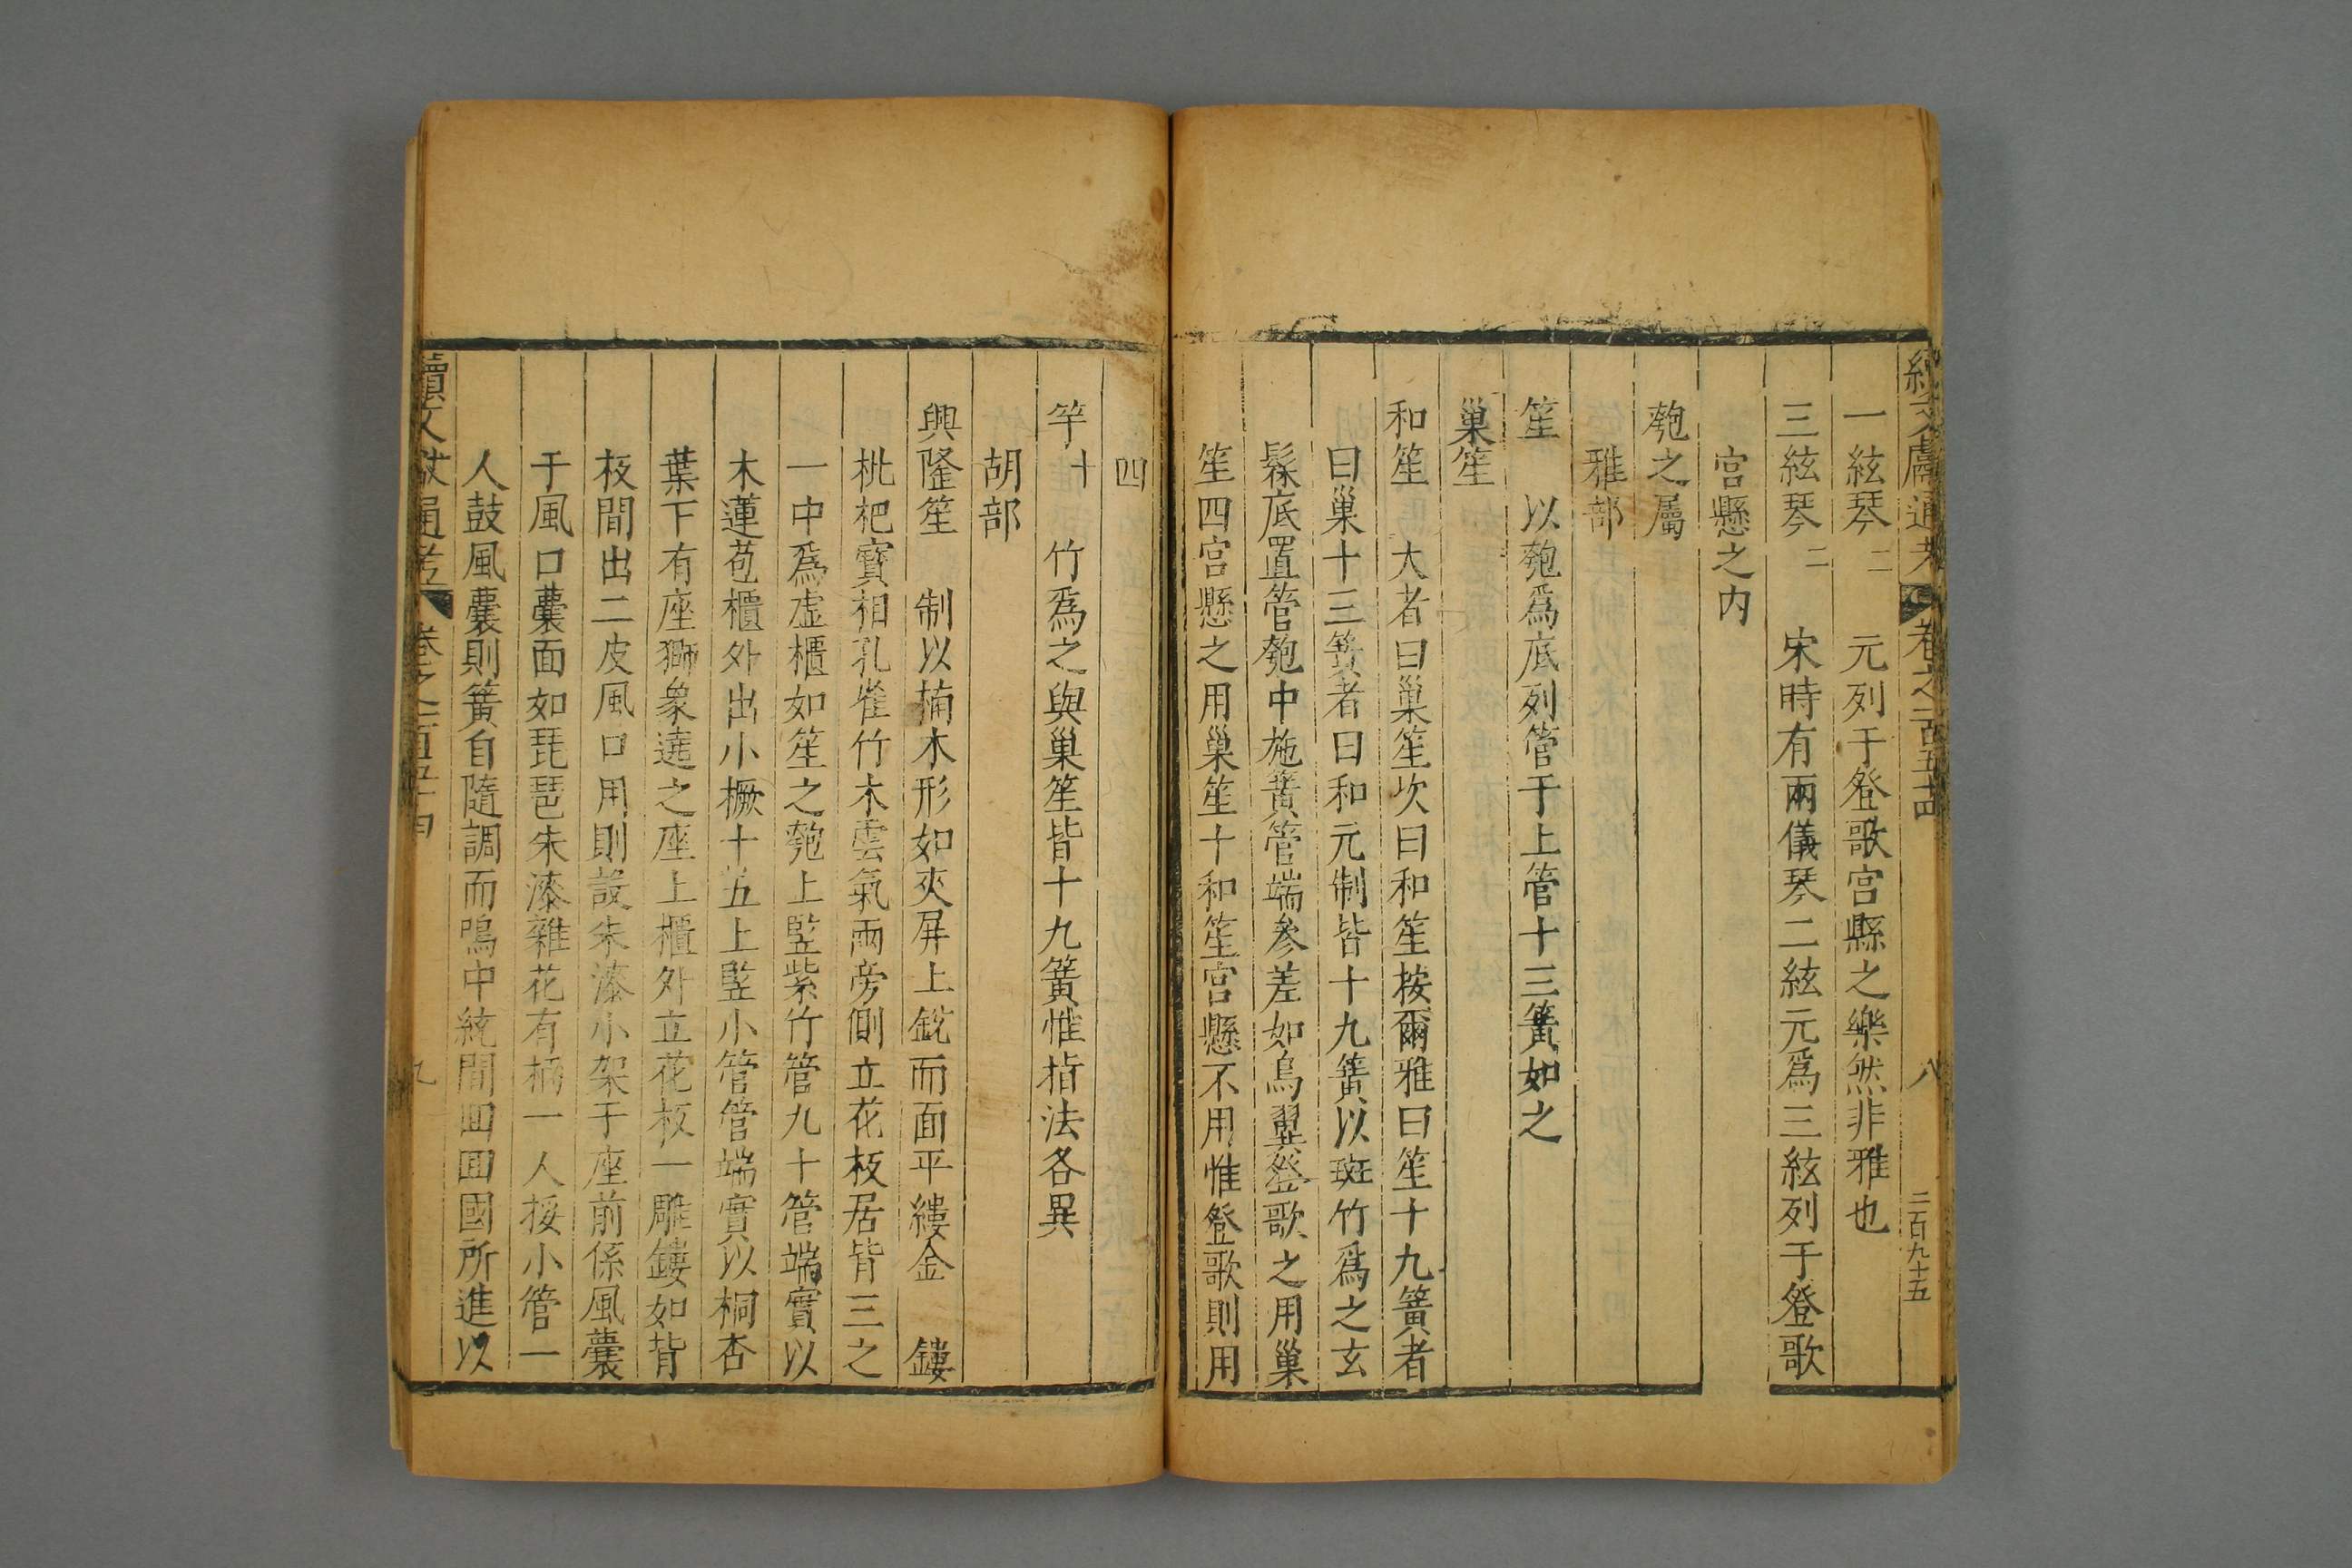 續文獻通考 卷之一百五十四 八 二百九十五
一絃琴二 元列于登歌宫縣之樂然非雅也
三絃琴二 宋時有兩儀琴二絃元爲三絃列于登歌
宫懸之内
匏之屬
雅部
笙 以匏爲底列管于上管十三簧如之
巢笙
和笙 大者曰巢笙次曰和笙按爾雅曰笙十九簧者
曰巢十三簧者曰和元制皆十九簧以斑竹爲之玄
髹底置管匏中施簧管端參差如鳥翼登歌之用巢
笙四宫懸之用巢笙十和笙宫懸不用惟登歌則用
四
竽十 竹爲之與巢笙皆十九簧惟指法各異
胡部
興隆笙 制以楠木形如夾屏上銳而面平縷金 鏤
枇杷寶相孔雀竹木雲氣兩旁側立花板居背三之
一中爲虚櫃如笙之匏上竪紫竹管九十管端實以
木蓮苞櫃外出小橛十五上竪小管管端實以桐杏
葉下有座獅象遶之座上櫃外立花板一雕鏤如背
板間出二皮風口用則設朱漆小架于座前係風囊
于風口囊面如琵琶朱漆雜花有柄一人挼小管一
人鼓風囊則簧自隨調而鳴中統間回回國所進以
續文獻通考 卷之一百五十四 九